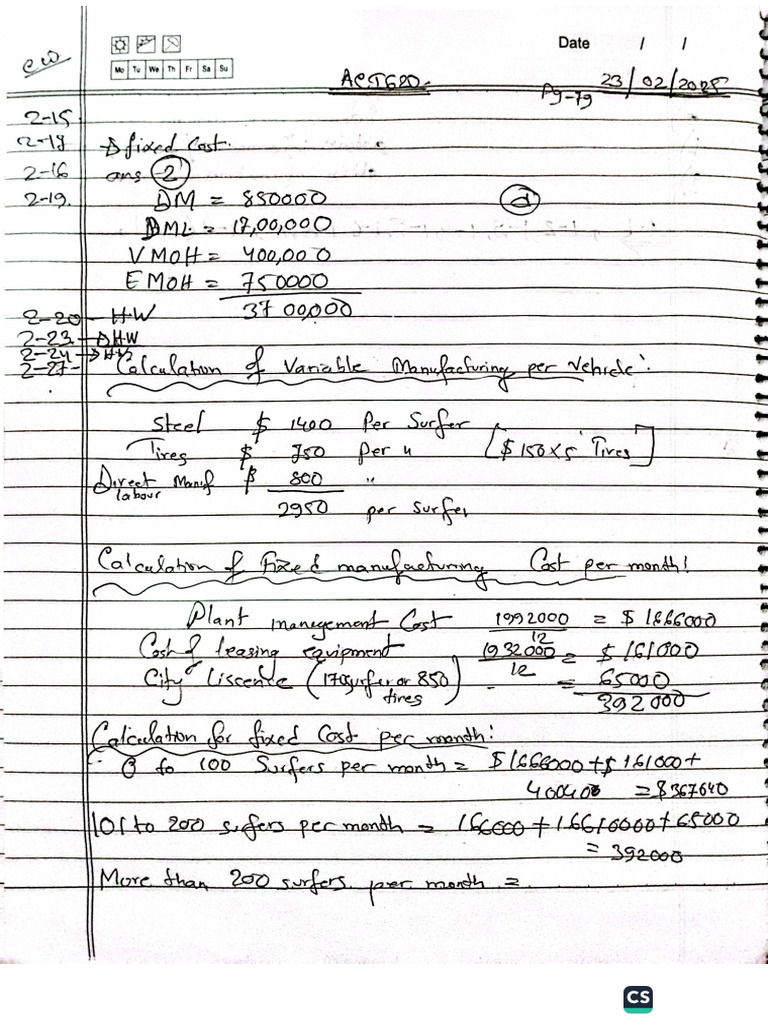 cw
Mo Tu We Th Fr Sa Su
Date / /
ACT620
Pg-79 23/02/2025
2-15
2-17 → fixed Cost.
2-16 ans (2)
2-19. DM = 850000 (a)
DML = 17,00,000
VMOH = 400,000
FMOH = 750000
3700,000
2-20 - HW
2-23 → HW
2-24 → HW
2-27- Calculation of Variable Manufacturing per vehicle:
Steel $ 1400 Per Surfer
Tires $ 750 per " [$ 150 x 5 Tires]
Direct Manuf labour $ 800 "
2950 per Surfer
Calculation of Fixed manufacturing Cost per month:
Plant management Cost 1992000/12 = $ 1666000
Cost of leasing equipment 1932000/12 = $ 161000
City Liscence (170 surfer or 850 tires) - = 65000
392000
Calculation for fixed Cost per month:
0 to 100 Surfers per month = $1666000 + $ 161000 +
400400 = $367640
101 to 200 surfers per month = 166000 + 1.6610000 + 65000
= 392000
More than 200 surfers per month =
CS